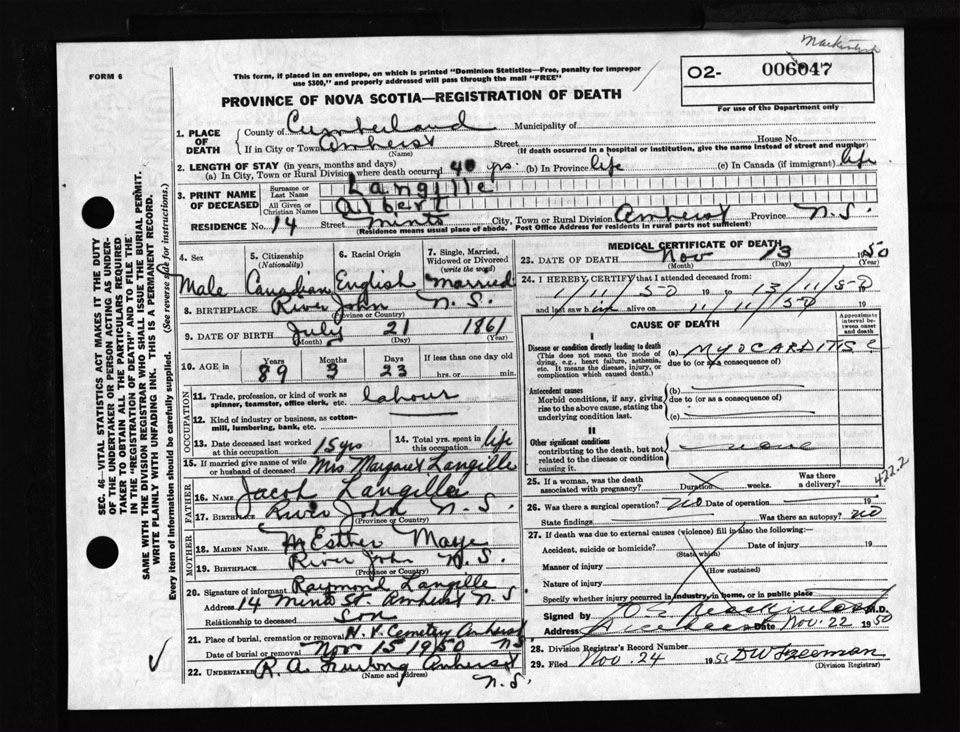 FORM 6
This form, if placed in an envelope, on which is printed "Dominion Statistics—Free, penalty for improper
use $300," and properly addressed will pass through the mail "FREE"
O2- 006047
For use of the Department only
PROVINCE OF NOVA SCOTIA—REGISTRATION OF DEATH
1. PLACE OF DEATH
County of Cumberland Municipality of
If in City or Town Amherst Street House No.
(Name) (If death occurred in a hospital or institution, give the name instead of street and number)
2. LENGTH OF STAY (in years, months and days)
(a) In City, Town or Rural Division where death occurred 40 yrs. (b) In Province life (c) In Canada (if immigrant) life
3. PRINT NAME OF DECEASED
Surname or Last Name Langille
All Given or Christian Names Albert
RESIDENCE No. 14 Street Minto City, Town or Rural Division Amherst Province N.S.
(Residence means usual place of abode. Post Office Address for residents in rural parts not sufficient)
4. Sex Male
5. Citizenship (Nationality) Canadian
6. Racial Origin English
7. Single, Married, Widowed or Divorced (write the word) Married
8. BIRTHPLACE River John N.S.
(Province or Country)
9. DATE OF BIRTH July 21 1861
(Month) (Day) (Year)
10. AGE in Years 89 Months 3 Days 23 If less than one day old hrs. or min.
OCCUPATION
11. Trade, profession, or kind of work as spinner, teamster, office clerk, etc. labour
12. Kind of industry or business, as cotton-mill, lumbering, bank, etc.
13. Date deceased last worked at this occupation 15 yrs
14. Total yrs. spent in this occupation life
15. If married give name of wife or husband of deceased Mrs Margaret Langille
FATHER
16. NAME Jacob Langille
17. BIRTHPLACE River John N.S.
(Province or Country)
MOTHER
18. MAIDEN NAME Esther
19. BIRTHPLACE River John N.S.
(Province or Country)
20. Signature of informant Raymond Langille
Address 14 Minto St. Amherst N S
Relationship to deceased Son
21. Place of burial, cremation or removal Cemetery Amherst
Date of burial or removal Nov 15 1950 N S
22. UNDERTAKER R. A. Amherst N.S.
(Name and address)
MEDICAL CERTIFICATE OF DEATH
23. DATE OF DEATH Nov 13 1950
(Month) (Day) (Year)
24. I HEREBY CERTIFY that I attended deceased from:
1/11/50 19 to 13/11/50 19
and last saw him alive on 11/11/50 19
CAUSE OF DEATH
Approximate interval between onset and death
I
Disease or condition directly leading to death
(This does not mean the mode of dying, e.g., heart failure, asthenia, etc. It means the disease, injury, or complication which caused death.)
(a) MYOCARDITIS ?
due to (or as a consequence of)
Antecedent causes
Morbid conditions, if any, giving rise to the above cause, stating the underlying condition last.
(b)
due to (or as a consequence of)
(c)
II
Other significant conditions contributing to the death, but not related to the disease or condition causing it.
none
25. If a woman, was the death associated with pregnancy? Duration weeks. Was there a delivery?
422.2
26. Was there surgical operation? no Date of operation 19
State findings Was there an autopsy? no
27. If death was due to external causes (violence) fill in also the following:
Accident, suicide or homicide? Date of injury 19
(State which)
Manner of injury
(How sustained)
Nature of injury
Specify whether injury occurred in industry, in home, or in public place
Signed by M.D.
Address Date Nov. 22 1950
28. Division Registrar's Record Number
29. Filed Nov. 24 195 D W Freeman
(Division Registrar)
SEC. 46—VITAL STATISTICS ACT MAKES IT THE DUTY
OF THE UNDERTAKER OR PERSON ACTING AS UNDER-
TAKER TO OBTAIN ALL THE PARTICULARS REQUIRED
IN THE "REGISTRATION OF DEATH" AND TO FILE THE
SAME WITH THE DIVISION REGISTRAR WHO SHALL ISSUE THE BURIAL PERMIT.
WRITE PLAINLY WITH UNFADING INK. THIS IS A PERMANENT RECORD.
Every item of information should be carefully supplied. (See reverse side for instructions.)